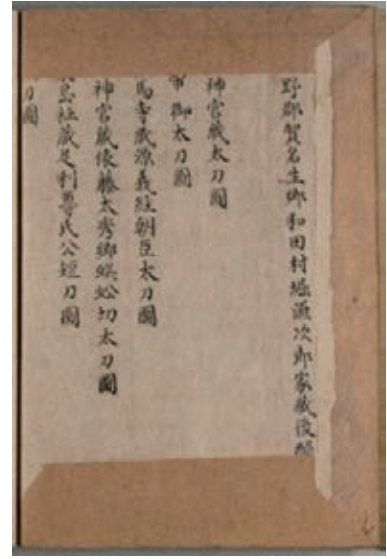 野郡賀名生郷和田村堀源次郎家蔵後醍
神宮蔵太刀圖
御太刀圖
馬寺蔵源義経朝臣太刀圖
神宮蔵俵藤太秀郷蜈蚣切太刀圖
島社蔵足利尊氏公短刀圖
刀圖